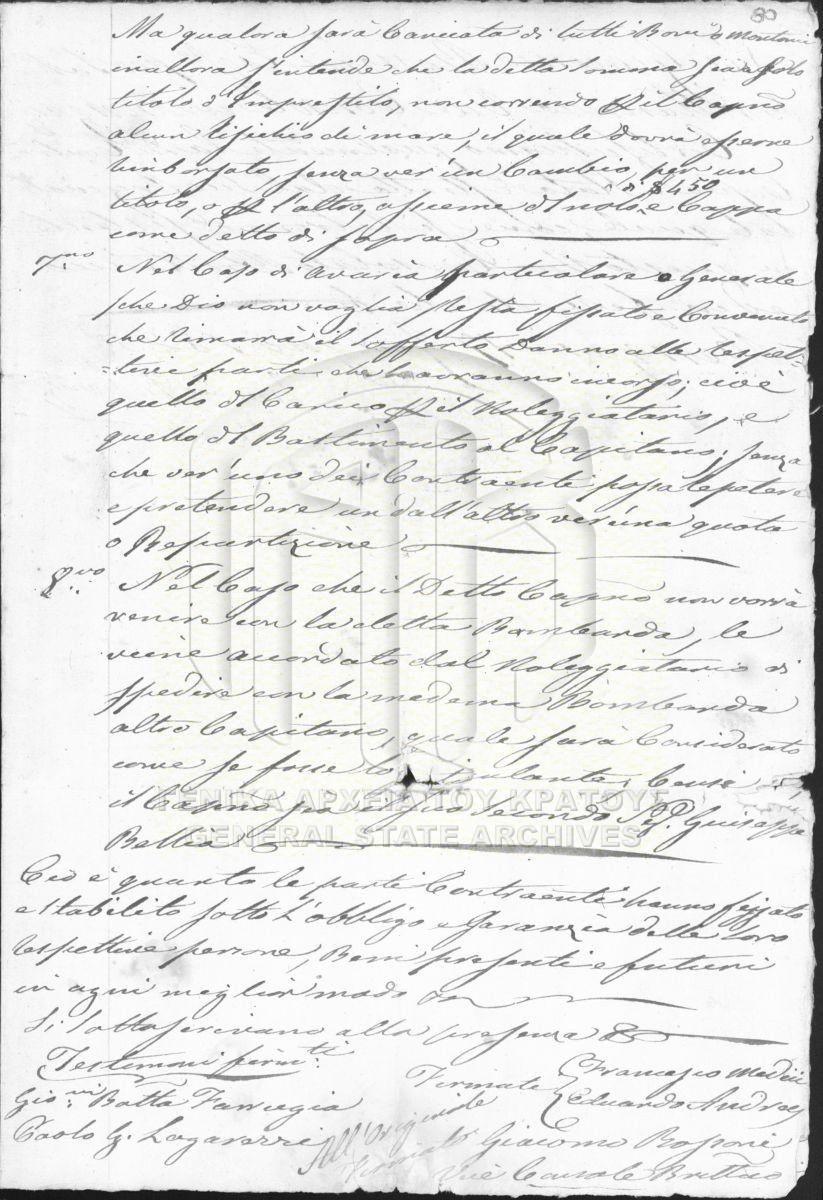 80
Ma qualora sarà Caricata di tutti Bovi o Montoni
in allora s'intende che la detta Somma sia a solo
titolo d'Imprestito, non correndo p il Capno
alcun Risichio di mare, il quale dovrà essere
rimborsato senza ver'un Cambio, per un
di $ 450
titolo, o p l'altro, assieme di nolo, e Cappa
come detto di sopra
7.mo Nel Caso di avaria particolare o Generale
che Dio non voglia, Resta fissato e Convenuto
che rimarrà il sofferto Danno alle respet-
=tive parti che l'avranno incorso; cioè
quello del Carico p il Noleggiatario, e
quello del Bastimento al Capitano; senza
che ver'uno dei Contraenti possa repetere
e pretendere un dall'altro ver'una quota
o Repartizione
8.vo Nel Caso che il Detto Capno non vorrà
venire con la detta Bombarda, le
viene accordato dal Noleggiatario di
spedire con la medema Bombarda
altro Capitano, quale sarà Considerato
come se fosse lo Stipulante;
il Carico sia Secondo Sig. Giuseppe
Bellia
Ciò è quanto le parti Contraenti hanno fissato
e stabilito sotto l'obbligo e Garanzia delle loro
respettive persone, Beni presenti e futuri
in ogni meglior modo
Si sottoscrivano alla presenza &
Testimoni firmti
Firmate Francesco
Eduardo
Gio.ni Batta Farrugia
Paolo G. Lagarezzi
All'Originale
Firmato Giacomo
Vice Console Britt.co
ΓΕΝΙΚΑ ΑΡΧΕΙΑ ΤΟΥ ΚΡΑΤΟΥΣ
GENERAL STATE ARCHIVES